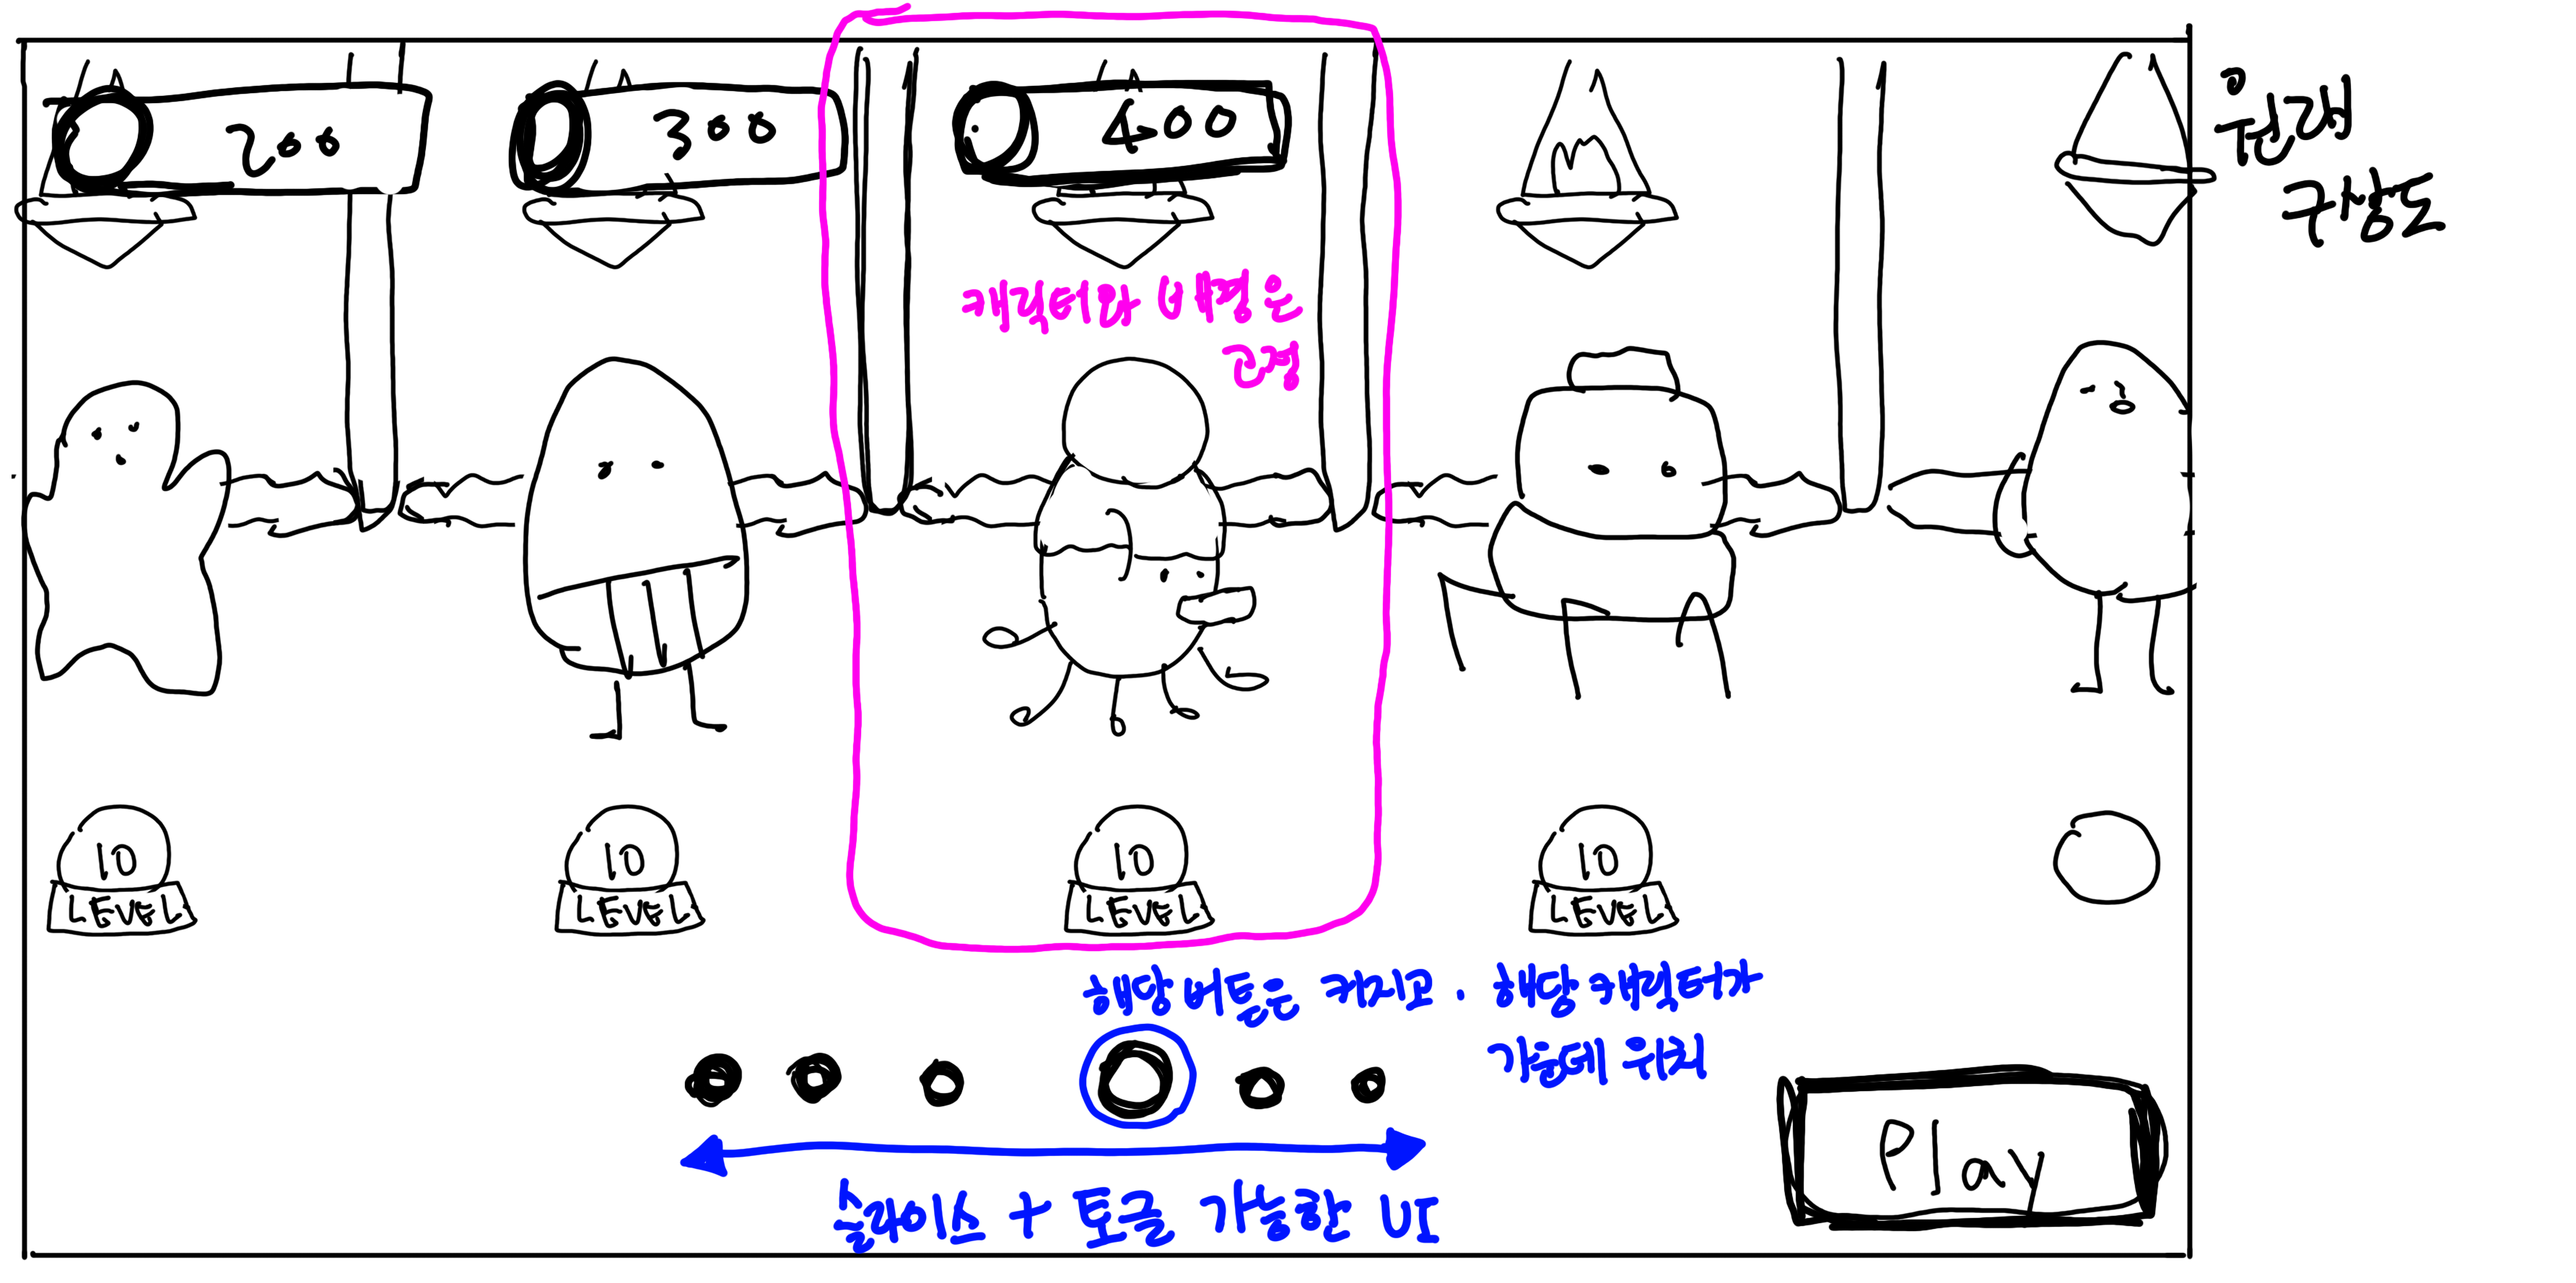 200
300
400
원래
구상도
캐릭터와 배경은
고정
10
LEVEL
10
LEVEL
10
LEVEL
10
LEVEL
해당 버튼은 커지고. 해당 캐릭터가
가운데 위치
슬라이스 + 토글 가능한 UI
Play